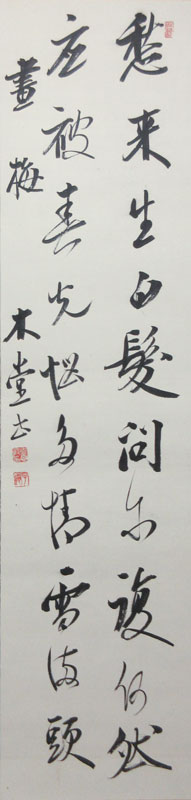 愁来生白髪問尓複何然
应被春光惱多情雪满頭
畫梅
木堂书